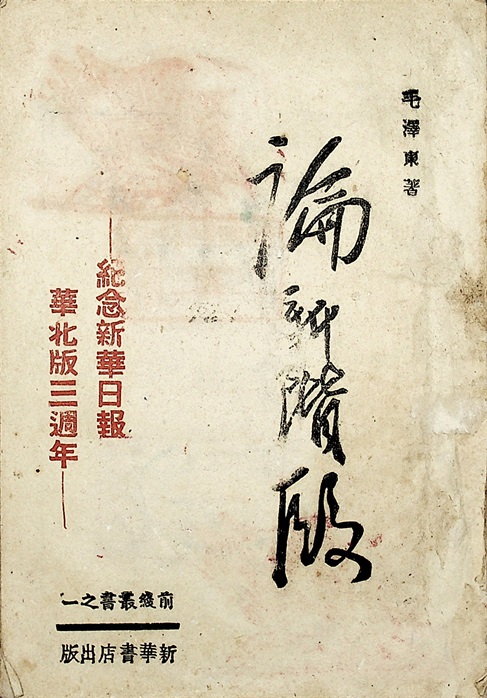 毛澤東著
論新階段
—紀念新華日報
華北版三週年—
前綫叢書之一
新華書店出版